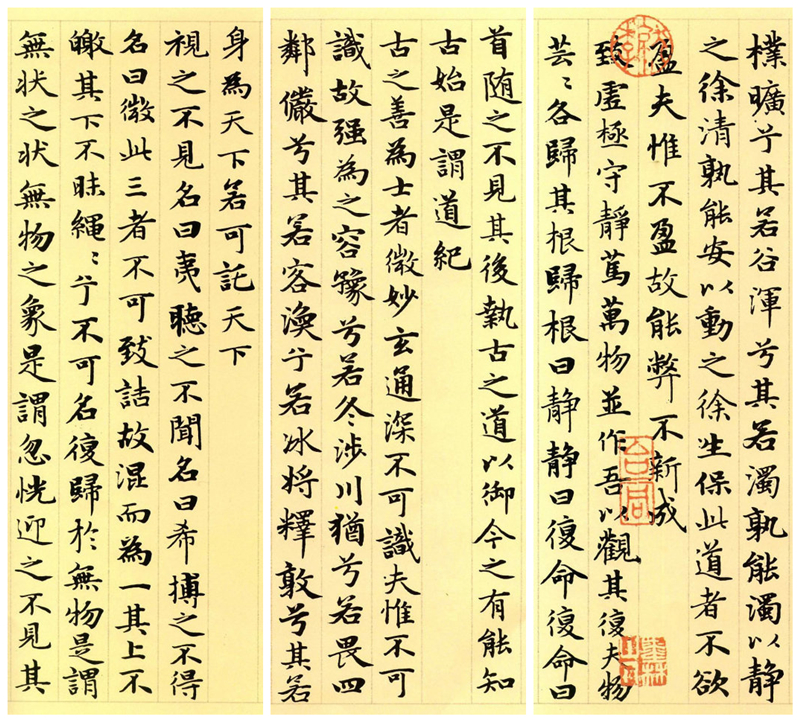 身為天下若可託天下
視之不見名曰夷聽之不聞名曰希搏之不得
名曰微此三者不可致詰故混而為一其上不
皦其下不昧繩〻兮不可名復歸於無物是謂
無状之状無物之象是謂忽恍迎之不見其
首随之不見其後執古之道以御今之有能知
古始是謂道紀
古之善為士者微妙玄通深不可識夫惟不可
識故强為之容豫兮若冬涉川猶兮若畏四
鄰儼兮其若客渙兮若冰将釋敦兮其若
樸曠兮其若谷渾兮其若濁孰能濁以静
之徐清孰能安以動之徐生保此道者不欲
盈夫惟不盈故能弊不新成
致虛極守靜篤萬物並作吾以觀其復夫物
芸〻各歸其根歸根曰静静曰復命復命曰
合同